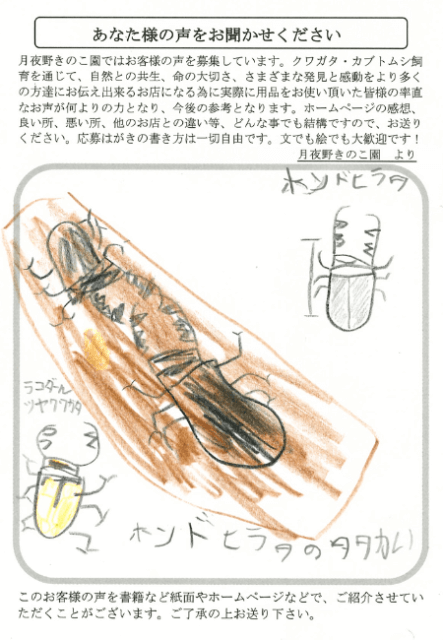 あなた様の声をお聞かせください
月夜野きのこ園ではお客様の声を募集しています。クワガタ・カブトムシ飼
育を通じて、自然との共生、命の大切さ、さまざまな発見と感動をより多く
の方達にお伝え出来るお店になる為に実際に用品をお使い頂いた皆様の率直
なお声が何よりの力となり、今後の参考となります。ホームページの感想、
良い所、悪い所、他のお店との違い等、どんな事でも結構ですので、お送り
ください。応募はがきの書き方は一切自由です。文でも絵でも大歓迎です！
月夜野きのこ園　より
ホンドヒラタ
ラコダール
ツヤクワガタ
ホンドヒラタのタタカい
このお客様の声を書籍など紙面やホームページなどで、ご紹介させてい
ただくことがございます。ご了承の上お送り下さい。